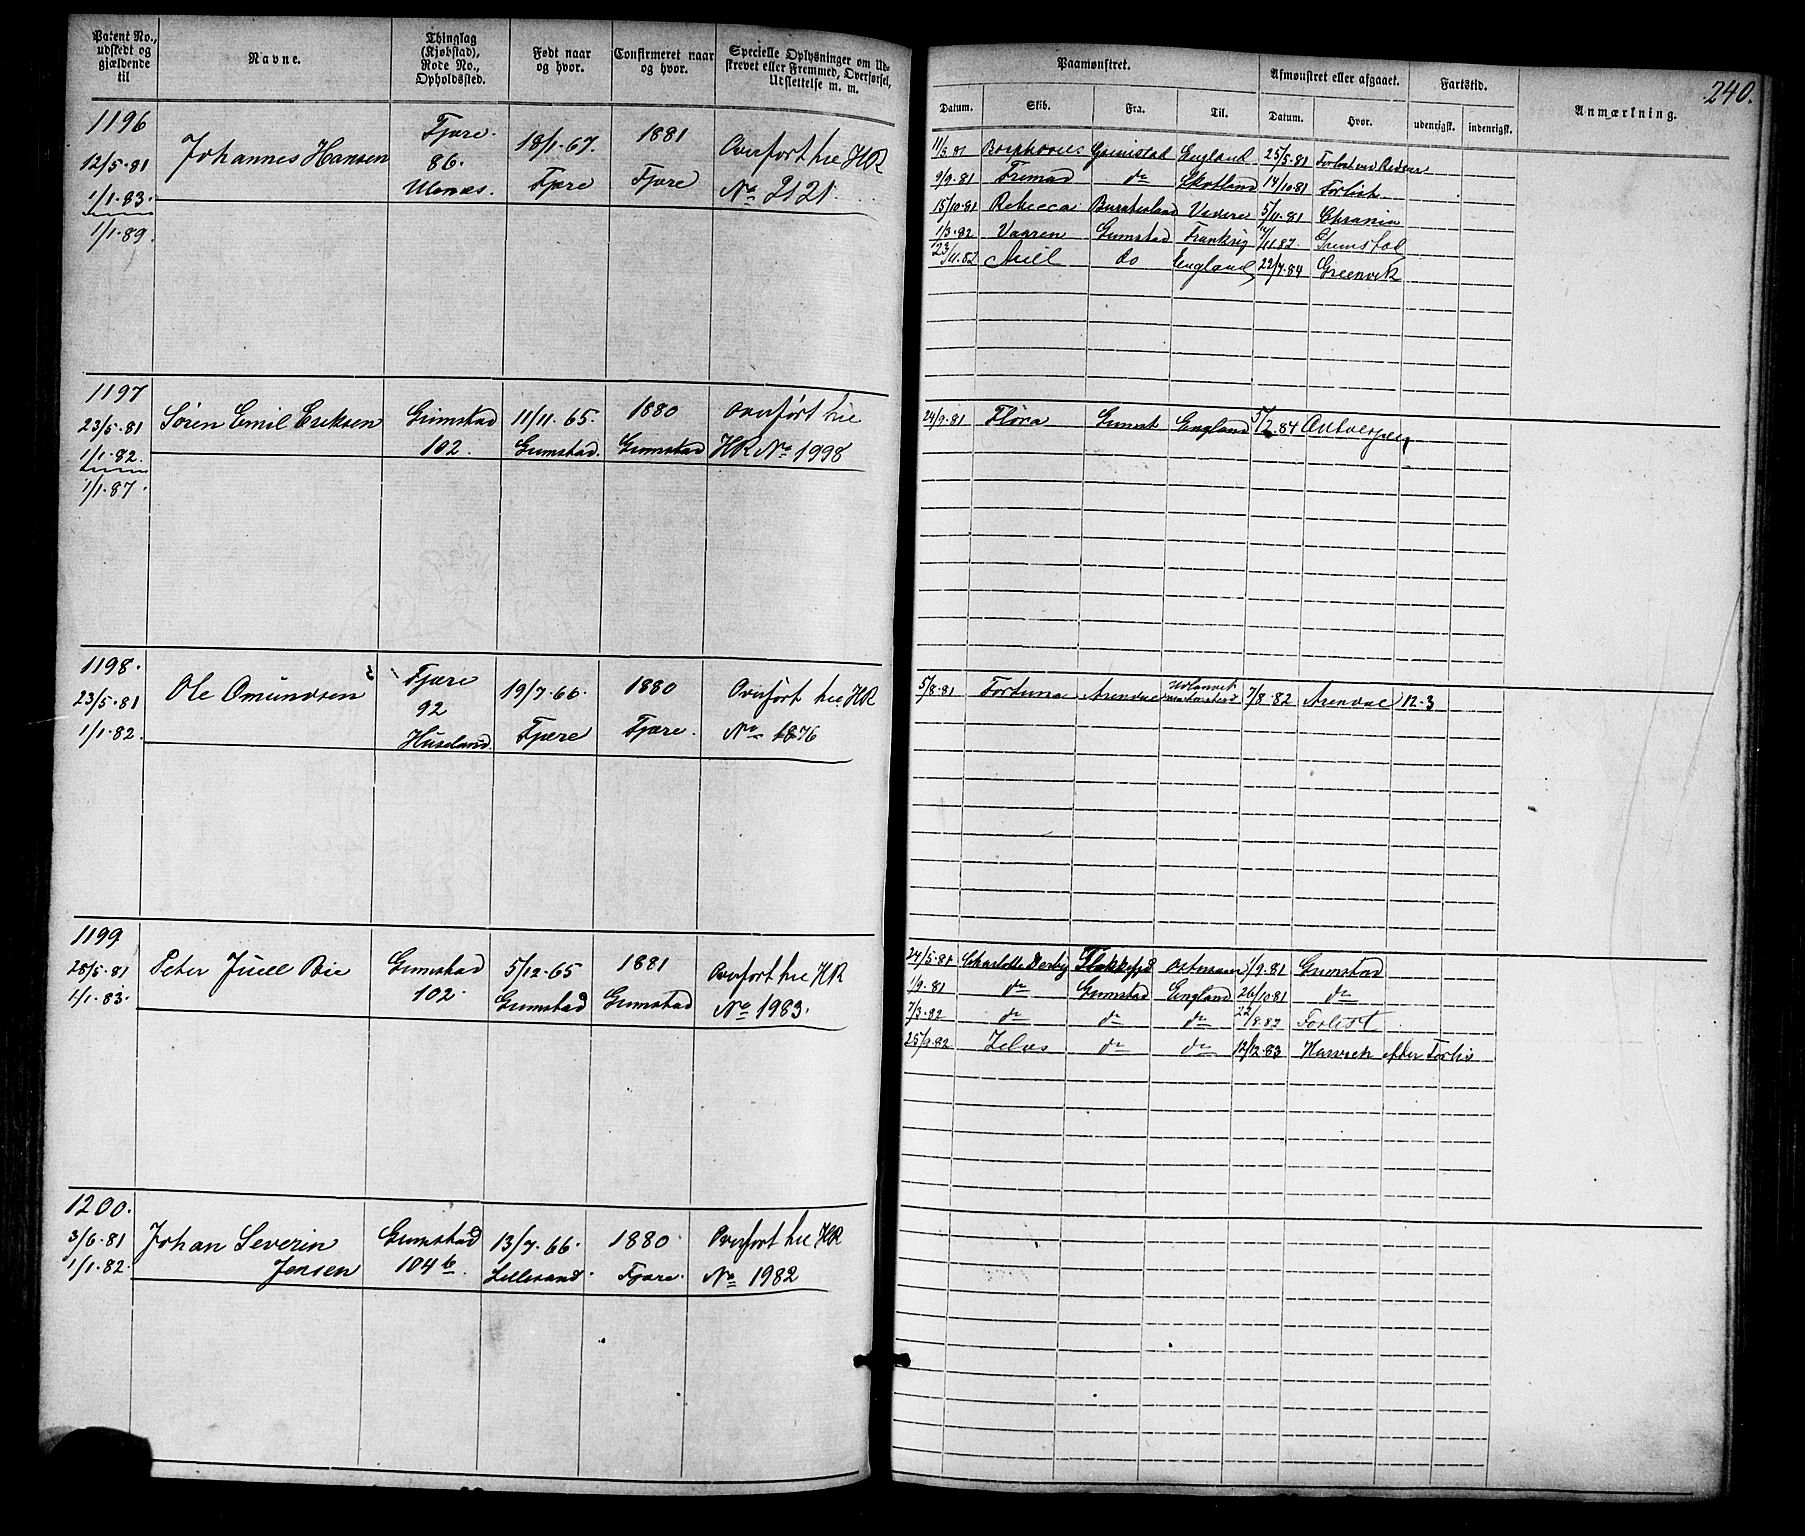 240.
Patent No., udstedt og gjældende til
Navne.
Thinglag (Kjøbstad), Rode No., Opholdssted.
Født naar og hvor.
Confirmeret naar og hvor.
Specielle Oplysninger om Udskrevet eller Fremmed, Overførsel, Udslettelse m. m.
Paamønstret.
Datum. Skib. Fra. Til.
Afmønstret eller afgaaet.
Datum. Hvor.
Fartstid.
udenrigst. indenrigst.
Anmærkning.
1196
12/5.81
1/1.83.
1/1.89.
Johannes Hansen
Fjære.
86.
18/1.67.
Fjære
1881
Fjære
Overført hie HR
No 2121.
11/5.81 Grimstad England 25/5.81
9/9.81 Fremad do Skotland 14/10 81 Forlist
15/10.81 Rebecca 5/11.81
1/3.82 Vaaren Grimstad Frankrig 11.82 Grimstad
23/11.82 do England 22/7.84 Greenvik
1197
23/5.81
1/1.82.
1/1.87.
Søren Emil Eriksen
Grimstad
102.
11/11.65.
Grimstad.
1880
Grimstad
Overført hie
HR No 1998
24/9.81 Flora Grimst England 5/2.84 Antverpen
1198.
23/5.81
1/1.82.
Ole Omundsen
Fjære
92
Huseland
19/7.66.
Fjære
1880
Fjære.
Overført hie HR
No 1876
5/8.81 Fortuna Arendal 7/8.82 Arendal 12-3
1199
28/5.81
1/1.83.
Peter Juell Bie
Grimstad
102.
5/12.65
Grimstad
1881
Grimstad
Overført hie HR
No 1983.
24/5.81 Charlotte 1/9.81 Grimstad
1/9.81 do Grimstad England 26/10 81 do
7/3.82 do do do 22/8.82 Forlist
25/9.82 do do 12/12.83 efter Forlis
1200.
3/6.81
1/1.82.
Johan Severin
Jensen
Grimstad
104 b.
13/7.66.
Lillesand.
1880.
Fjære.
Overført hie HR
No 1982